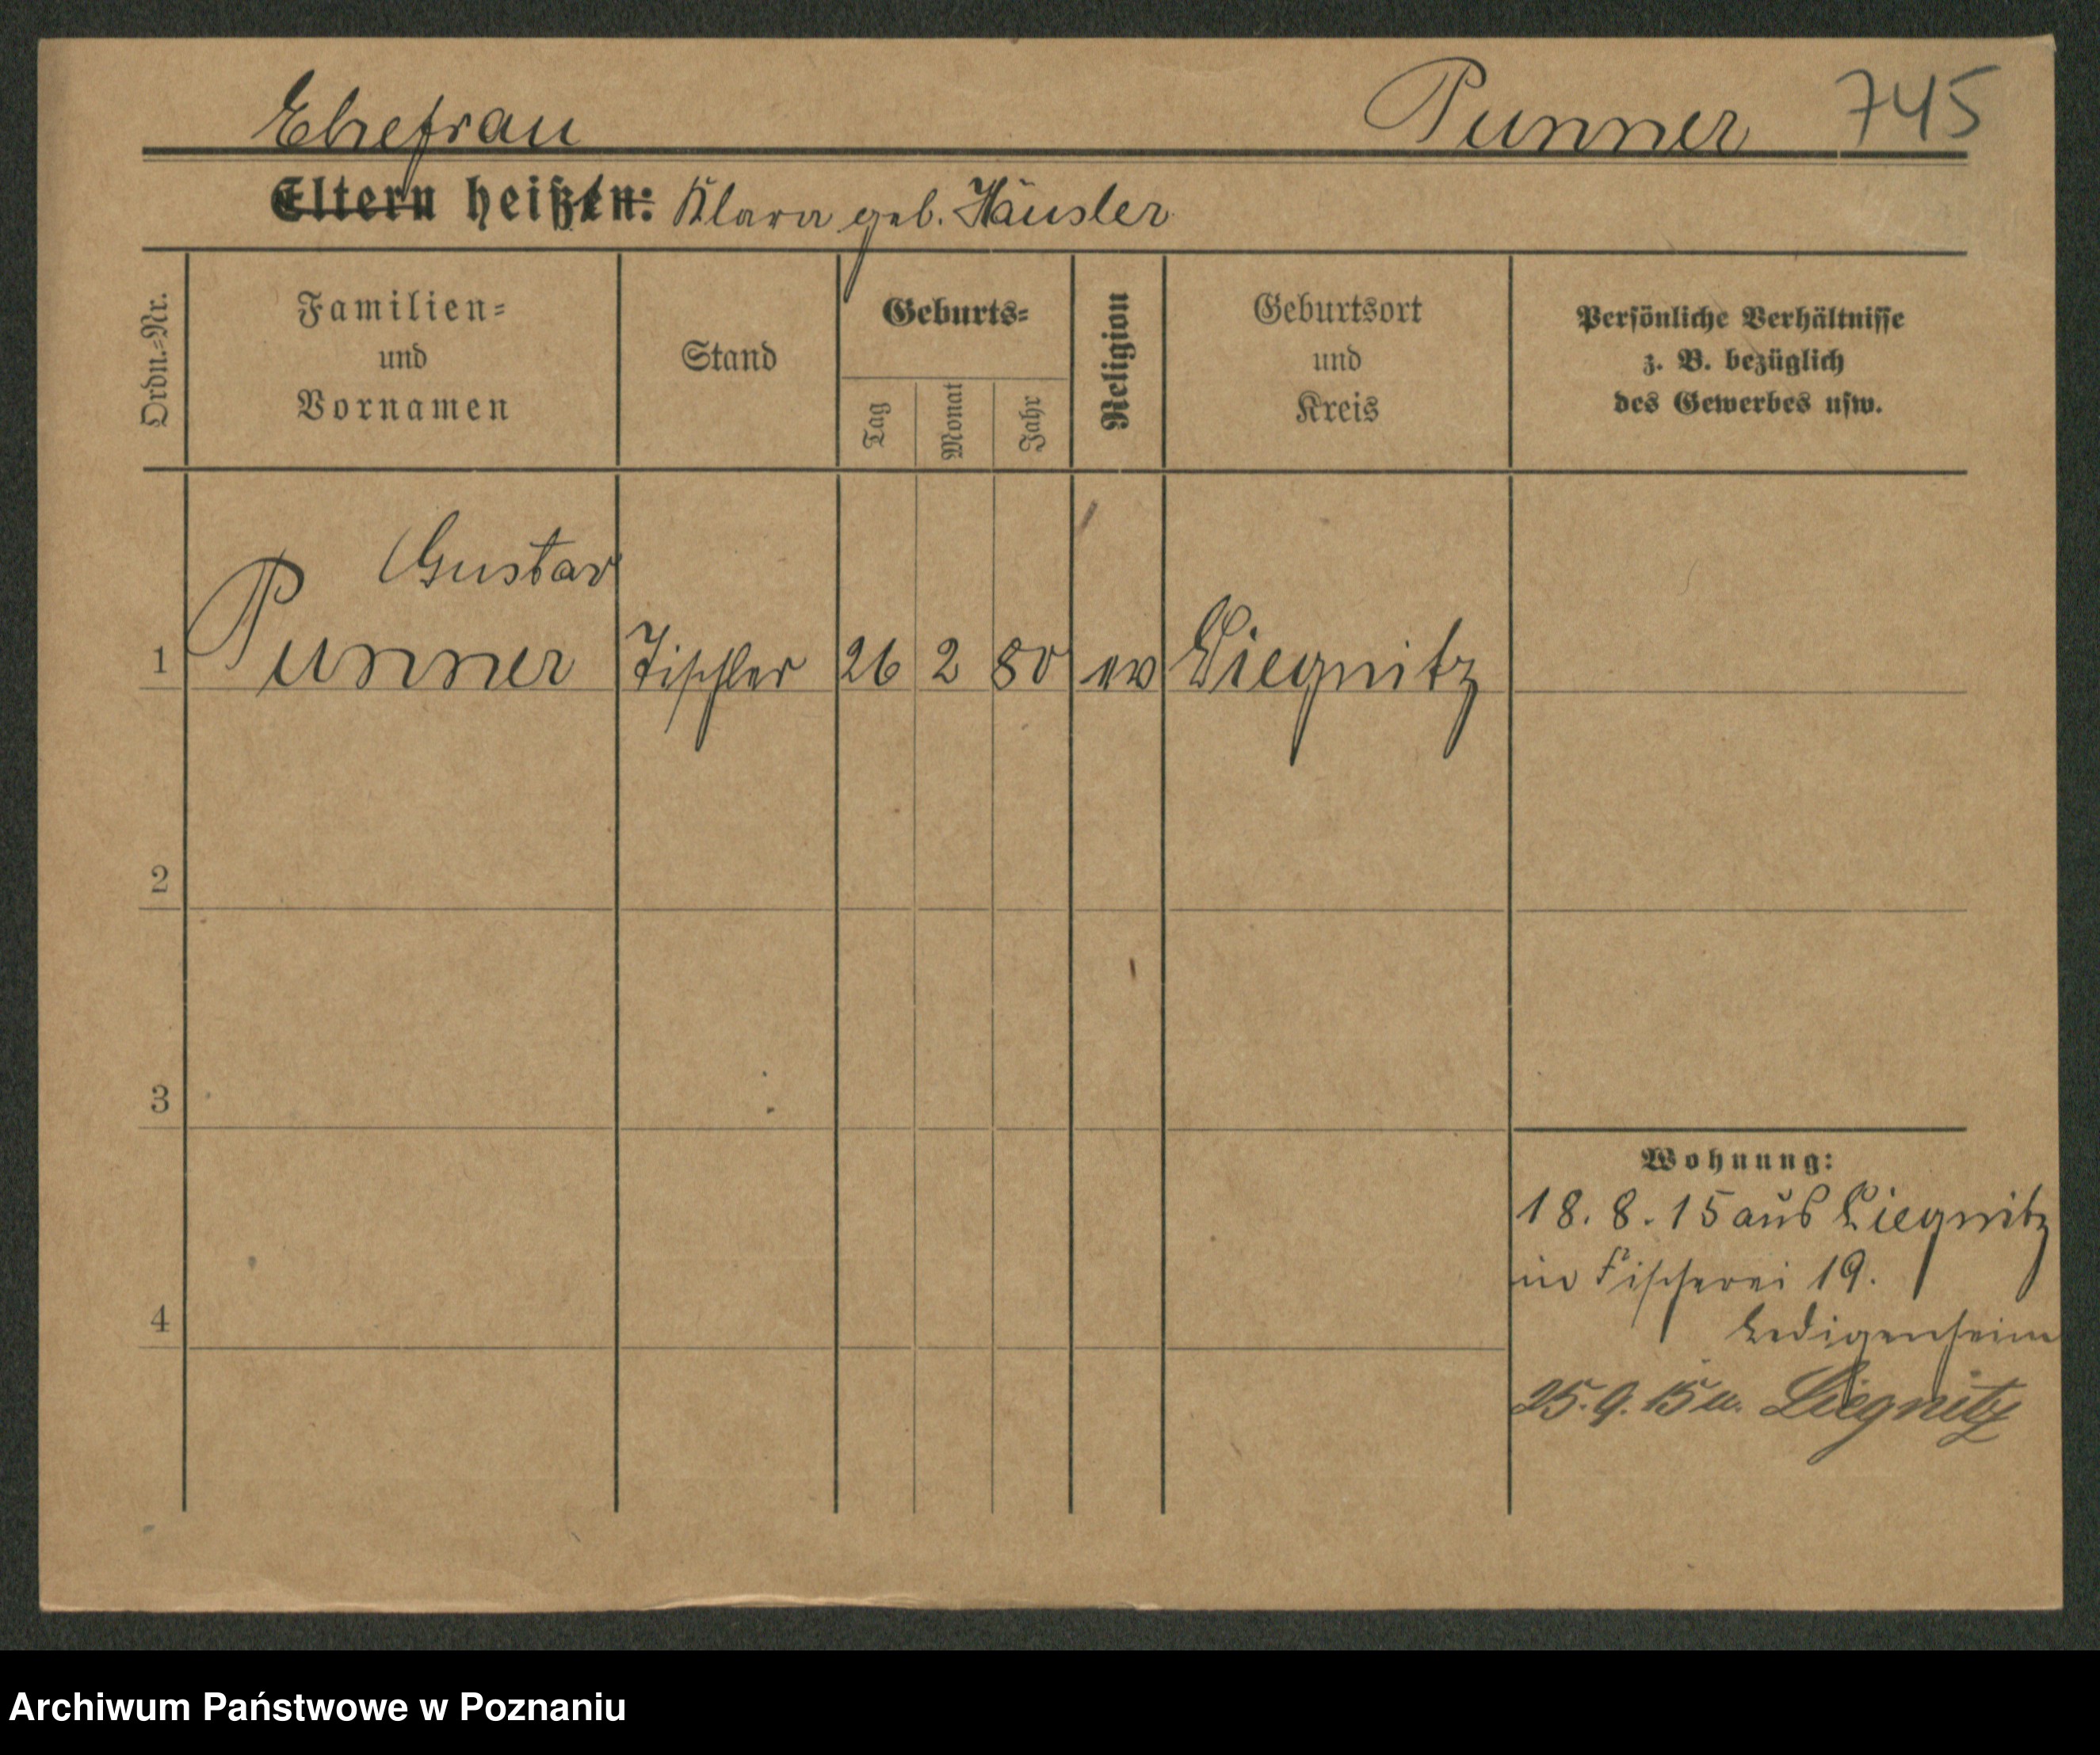 Ehefrau Punner 745
Eltern heißen: Klara geb. Häusler
Ordn.-Nr.
Familien-
und
Vornamen
Stand
Geburts-
Tag
Monat
Jahr
Religion
Geburtsort
und
Kreis
Persönliche Verhältnisse
z. B. bezüglich
des Gewerbes usw.
Gustav
1 Punner Tischler 26 2 80 ev Liegnitz
2
3
Wohnung:
18. 8. 15 aus Liegnitz
in Fischerei 19.
4
Ledigenheim
25. 9. 15 n. Liegnitz
Archiwum Państwowe w Poznaniu